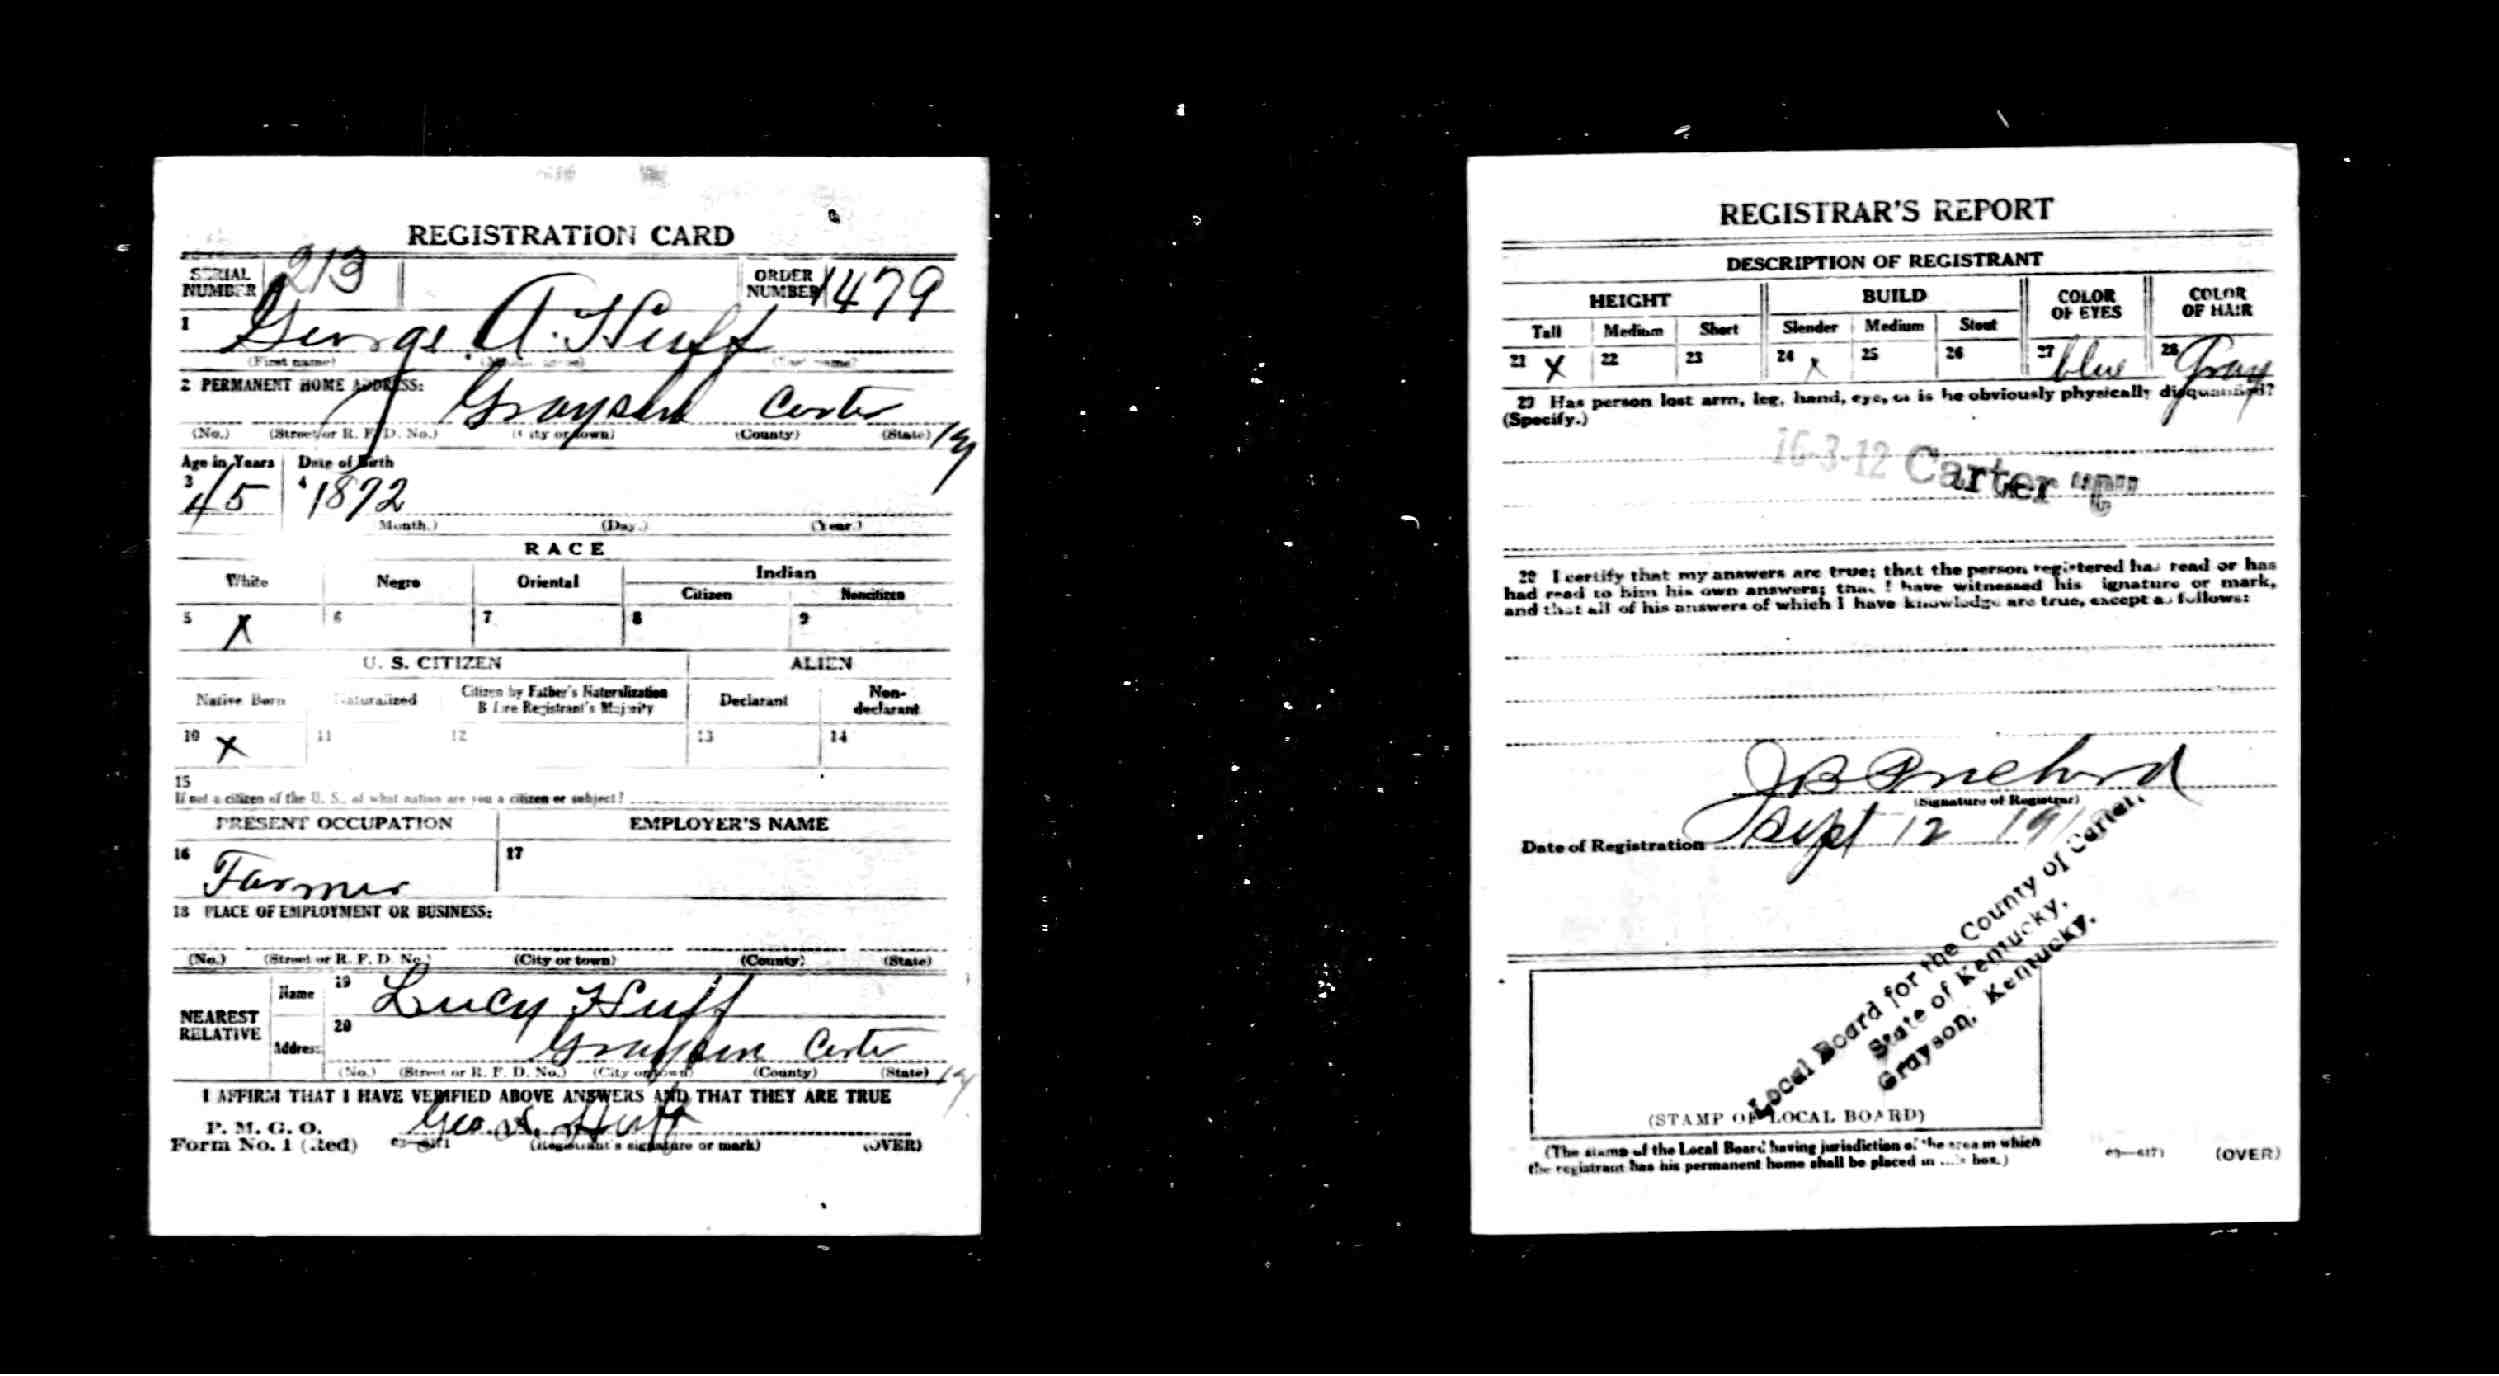 REGISTRATION CARD
SERIAL NUMBER 213 ORDER NUMBER 1479
1 George A. Huff
(First name) (Last name)
2 PERMANENT HOME ADDRESS:
Grayson Carter Ky
(No.) (Street or R. F. D. No.) (City or town) (County) (State)
Age in Years Date of Birth
3 45 4 1872
Month.) (Day.) (Year.)
RACE
White Negro Oriental Indian
Citizen Noncitizen
5 X 6 7 8 9
U. S. CITIZEN ALIEN
Native Born Naturalized Citizen by Father's Naturalization Before Registrant's Majority Declarant Non-declarant
10 X 11 12 13 14
15
If not a citizen of the U. S., of what nation are you a citizen or subject?
PRESENT OCCUPATION EMPLOYER'S NAME
16 Farmer 17
18 PLACE OF EMPLOYMENT OR BUSINESS:
(No.) (Street or R. F. D. No.) (City or town) (County) (State)
NEAREST RELATIVE Name 19 Lucy Huff
Address 20 Grayson Carter Ky
(No.) (Street or R. F. D. No.) (City or town) (County) (State)
I AFFIRM THAT I HAVE VERIFIED ABOVE ANSWERS AND THAT THEY ARE TRUE
P. M. G. O.
Form No. 1 (Red) Geo. A. Huff
(Registrant's signature or mark) (OVER)
REGISTRAR'S REPORT
DESCRIPTION OF REGISTRANT
HEIGHT BUILD COLOR OF EYES COLOR OF HAIR
Tall Medium Short Slender Medium Stout
21 X 22 23 24 X 25 26 27 blue 28 Gray
29 Has person lost arm, leg, hand, eye, or is he obviously physically disqualified?
(Specify.)
16-3-12 Carter
30 I certify that my answers are true; that the person registered has read or has
had read to him his own answers; that I have witnessed his signature or mark,
and that all of his answers of which I have knowledge are true, except as follows:
J B Prichard
(Signature of Registrar)
Date of Registration Sept 12
Local Board for the County of Carter,
State of Kentucky,
Grayson, Kentucky.
(STAMP OF LOCAL BOARD)
(The stamp of the Local Board having jurisdiction of the area in which
the registrant has his permanent home shall be placed in box.)
(OVER)